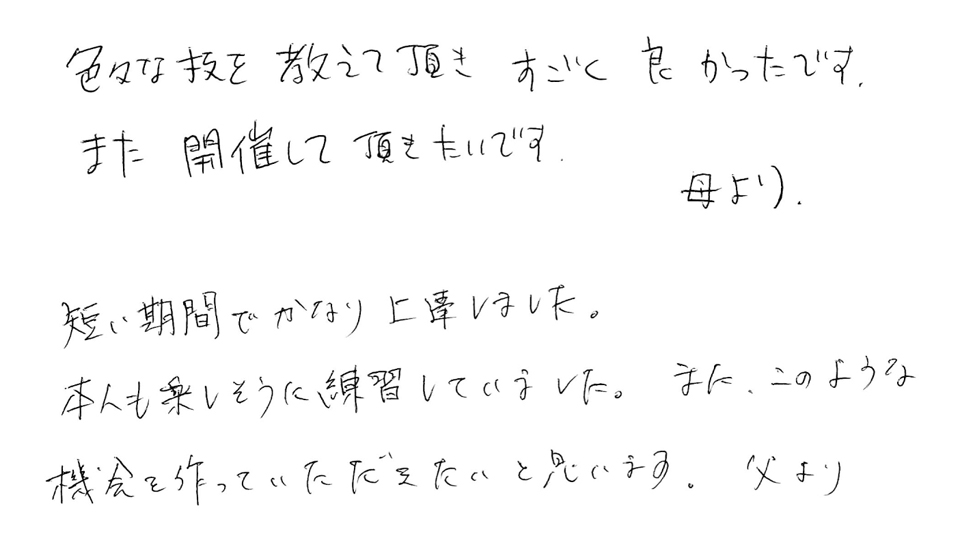 色々な技を教えて頂きすごく良かったです.
また開催して頂きたいです.
母より.
短い期間でかなり上達しました。
本人も楽しそうに、練習していました。また、このような
機会を作っていただきたいと思います. 父より